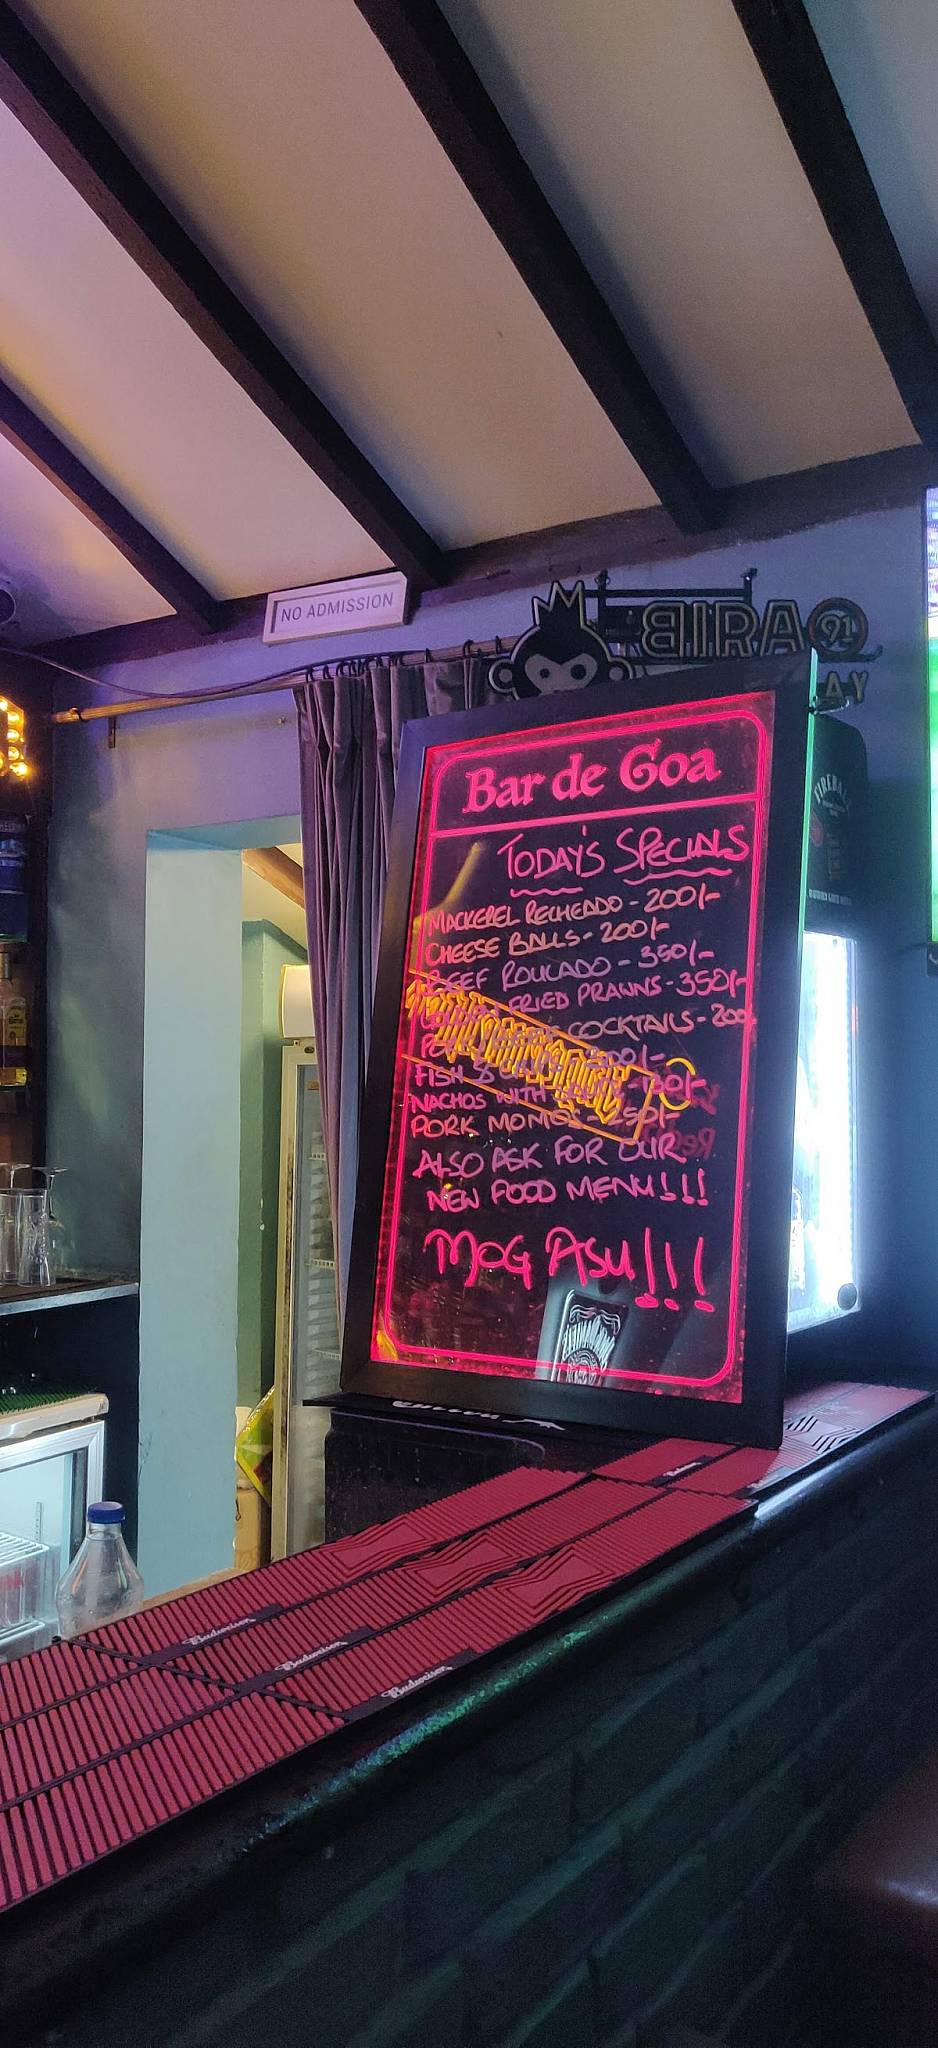 NO ADMISSION
BIRA 91
AY
FIREBALL
Bar de Goa
TODAY'S SPECIALS
MACKEREL RECHEADO - 200/-
CHEESE BALLS - 200/-
BEEF ROULADO - 350/-
FRIED PRAWNS - 350/-
COCKTAILS - 200
200/-
FISH &
NACHOS WITH
PORK MOMOS
ALSO ASK FOR OUR
NEW FOOD MENU!!!
MOG ASU!!!
Budweiser
Budweiser
Budweiser